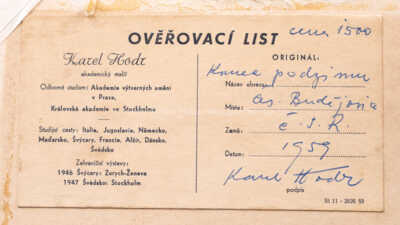 OVĚŘOVACÍ LIST
cena 1500
Karel Hodr
akademický malíř
Odborné studium: Akademie výtvarných umění
v Praze,
Královská akademie ve Stockholmu
Studijní cesty: Italie, Jugoslavie, Německo,
Maďarsko, Švýcary, Francie, Alžír, Dánsko,
Švédsko
Zahraniční výstavy:
1946 Švýcary: Zurych-Ženeva
1947 Švédsko: Stockholm
ORIGINÁL:
Název obrazu: Konec podzimu
Místo: Čes. Budějovice
Země: Č. S. R.
Datum: 1959
Karel Hodr
podpis